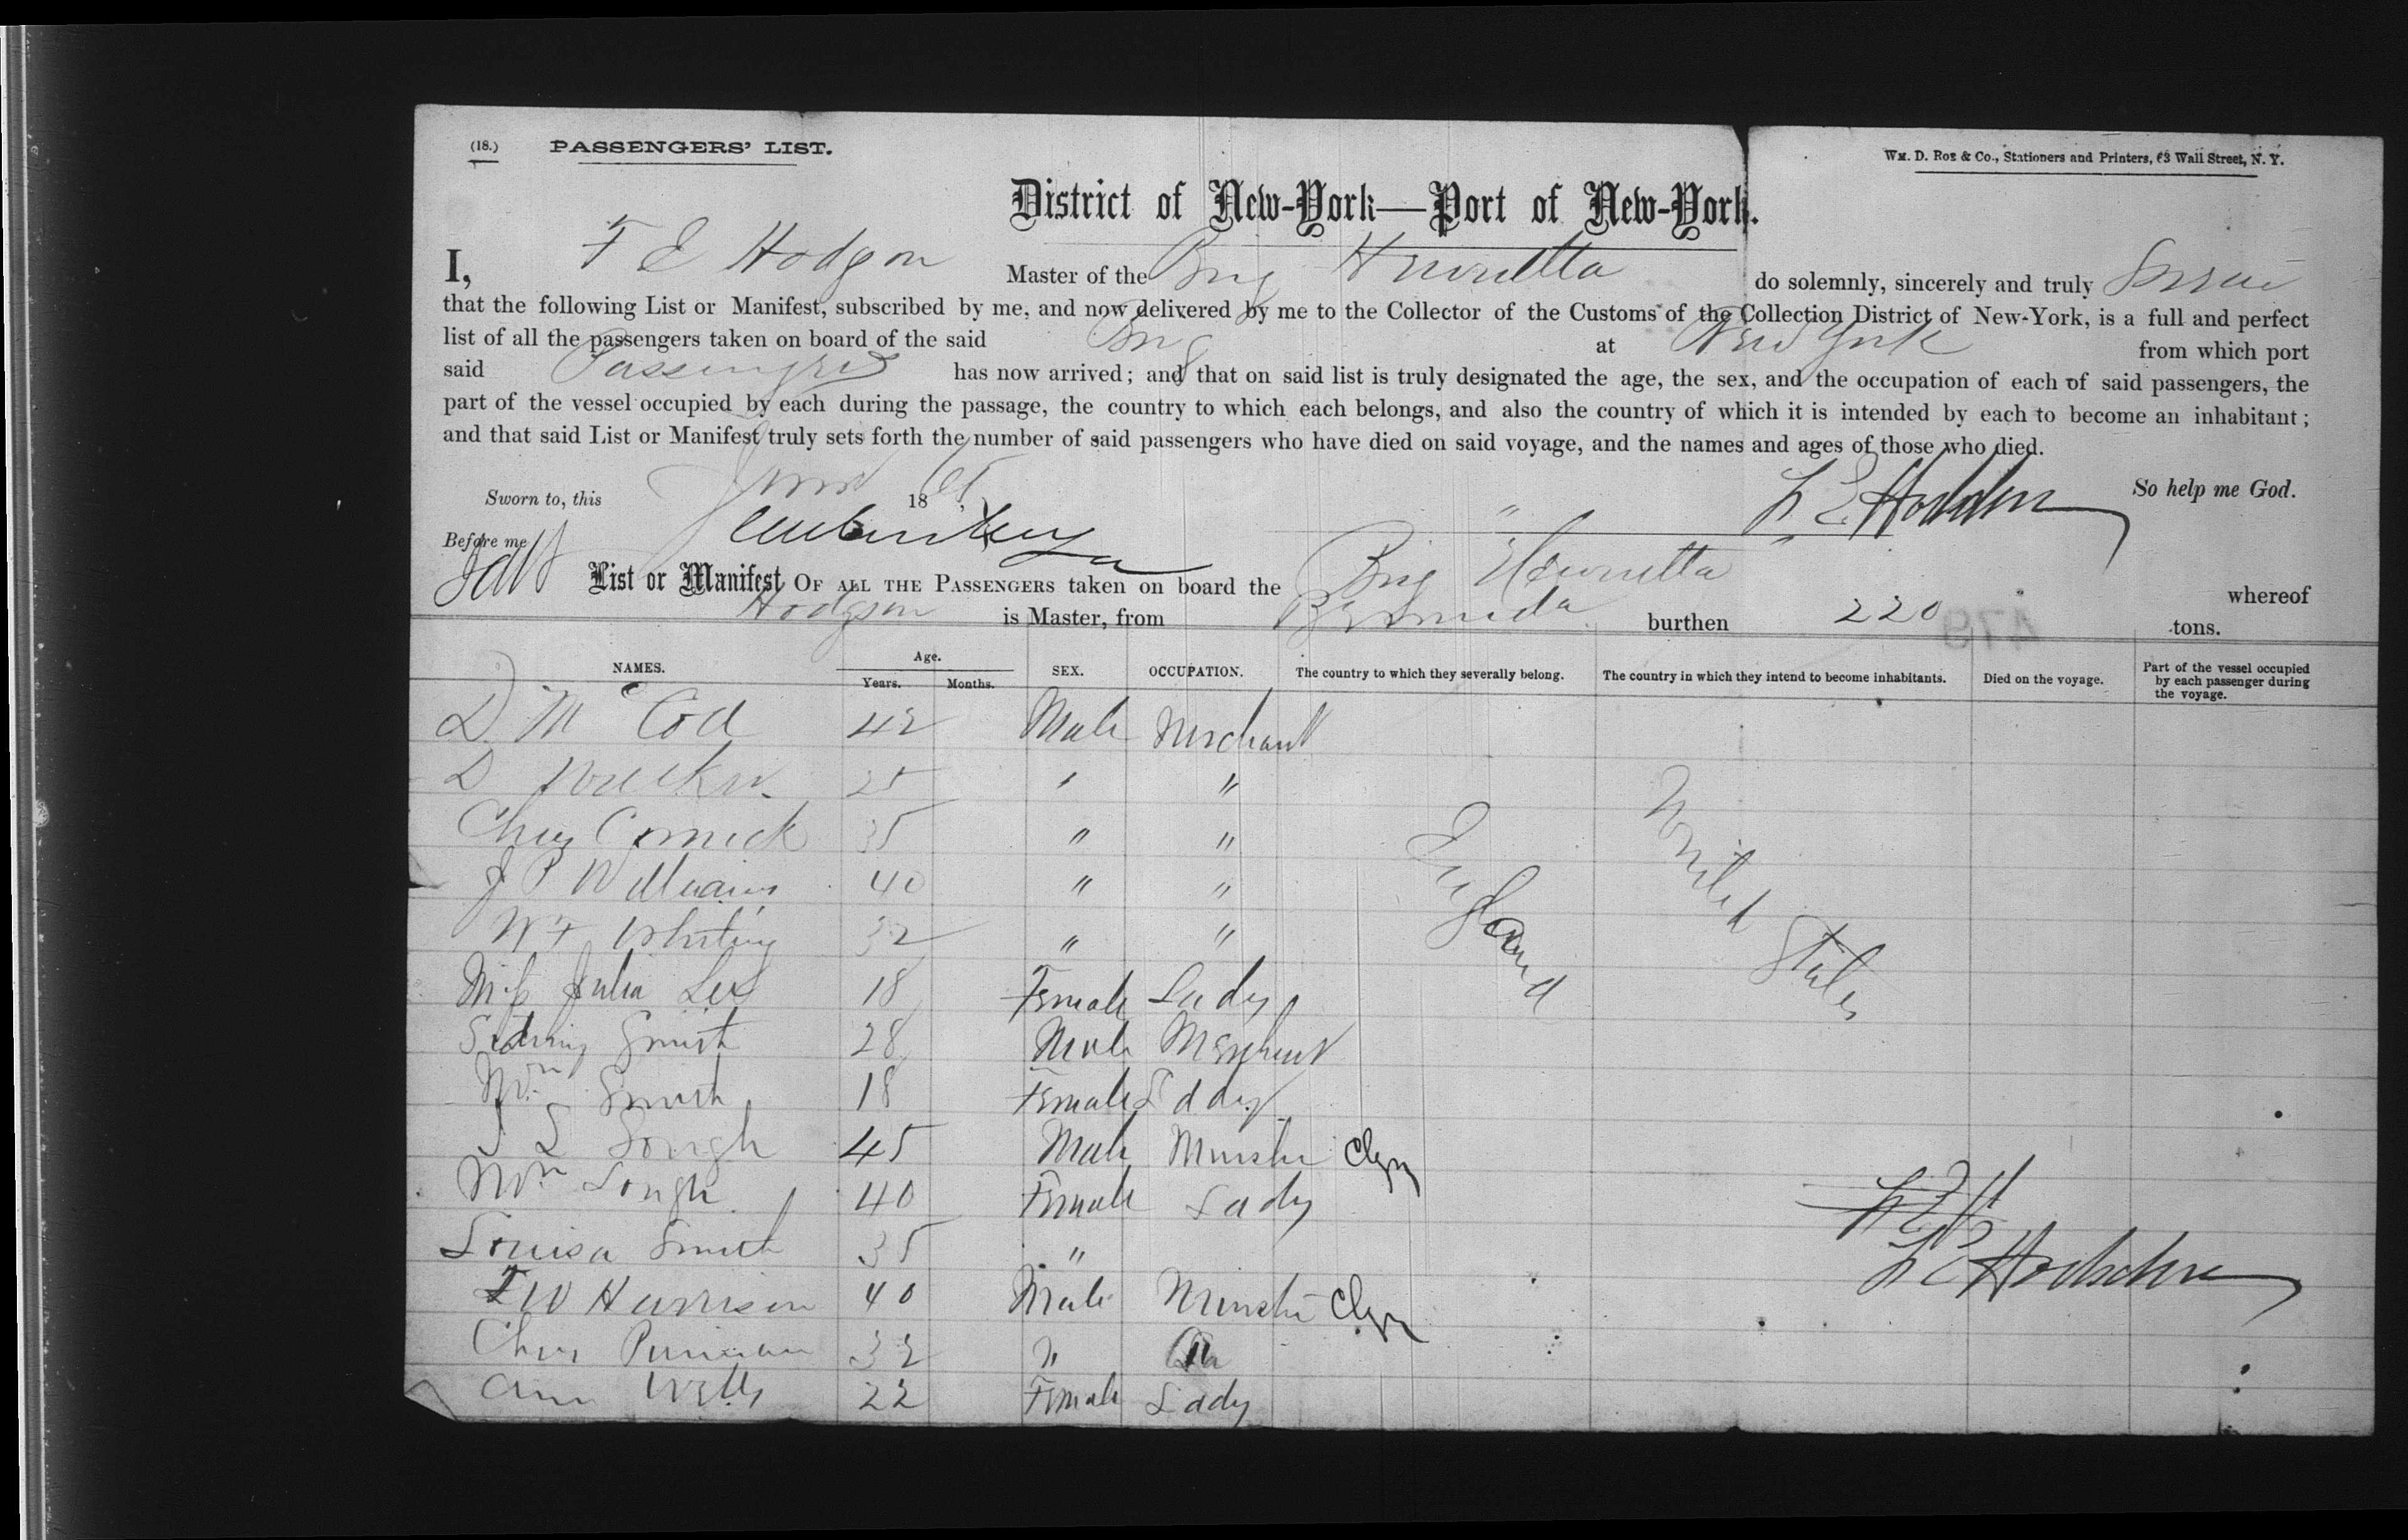 (18.) PASSENGERS' LIST.
Wm. D. Roe & Co., Stationers and Printers, 63 Wall Street, N. Y.
District of New-York—Port of New-York.
I, F E Hodgson Master of the Brig Henrietta do solemnly, sincerely and truly Swear
that the following List or Manifest, subscribed by me, and now delivered by me to the Collector of the Customs of the Collection District of New-York, is a full and perfect
list of all the passengers taken on board of the said Brig at New York from which port
said Passengers has now arrived; and that on said list is truly designated the age, the sex, and the occupation of each of said passengers, the
part of the vessel occupied by each during the passage, the country to which each belongs, and also the country of which it is intended by each to become an inhabitant;
and that said List or Manifest truly sets forth the number of said passengers who have died on said voyage, and the names and ages of those who died.
Sworn to, this 18 So help me God.
Before me
List or Manifest OF ALL THE PASSENGERS taken on board the Brig Henrietta whereof
Hodgson is Master, from Bermuda burthen 220 tons.
NAMES. Age. Years. Months. SEX. OCCUPATION. The country to which they severally belong. The country in which they intend to become inhabitants. Died on the voyage. Part of the vessel occupied by each passenger during the voyage.
D. Mc Cod 42 Male Merchant
D 25 " "
Chas Comick 35 " "
J P Williams 40 " "
W F Whiting 32 " "
Miss Julia Lee 18 Female Lady
England
United States
Sidney Smith 28 Male Merchant
Mrs Smith 18 Female Lady
J L Lough 45 Male Minster Clgy
Mrs Lough 40 Female Lady
Louisa Smith 35 "
F W Harrison 40 Male Minster Clgy
Chas 32 "
Ann Wells 22 Female Lady